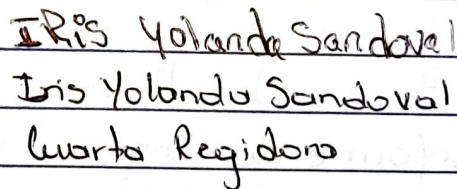 IRis Yolanda Sandoval
Iris Yolanda Sandoval
Cuarta Regidora